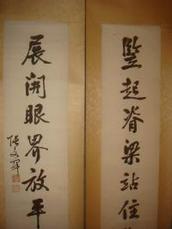 豎起脊梁站住
展開眼界放平